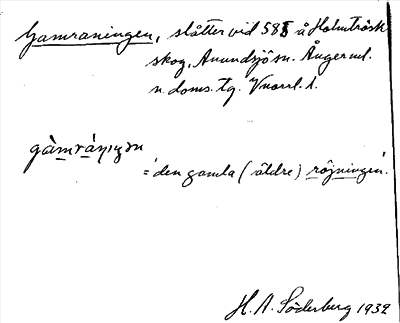 Gamraningen, slåtter vid 58 å Holmträsk
skog, Anundsjö sn. Ångerml.
n. doms. tg. Vnorrl. l.
gàmrániŋən
= 'den gamla (äldre) röjningen'.
H. A. Söderberg 1932